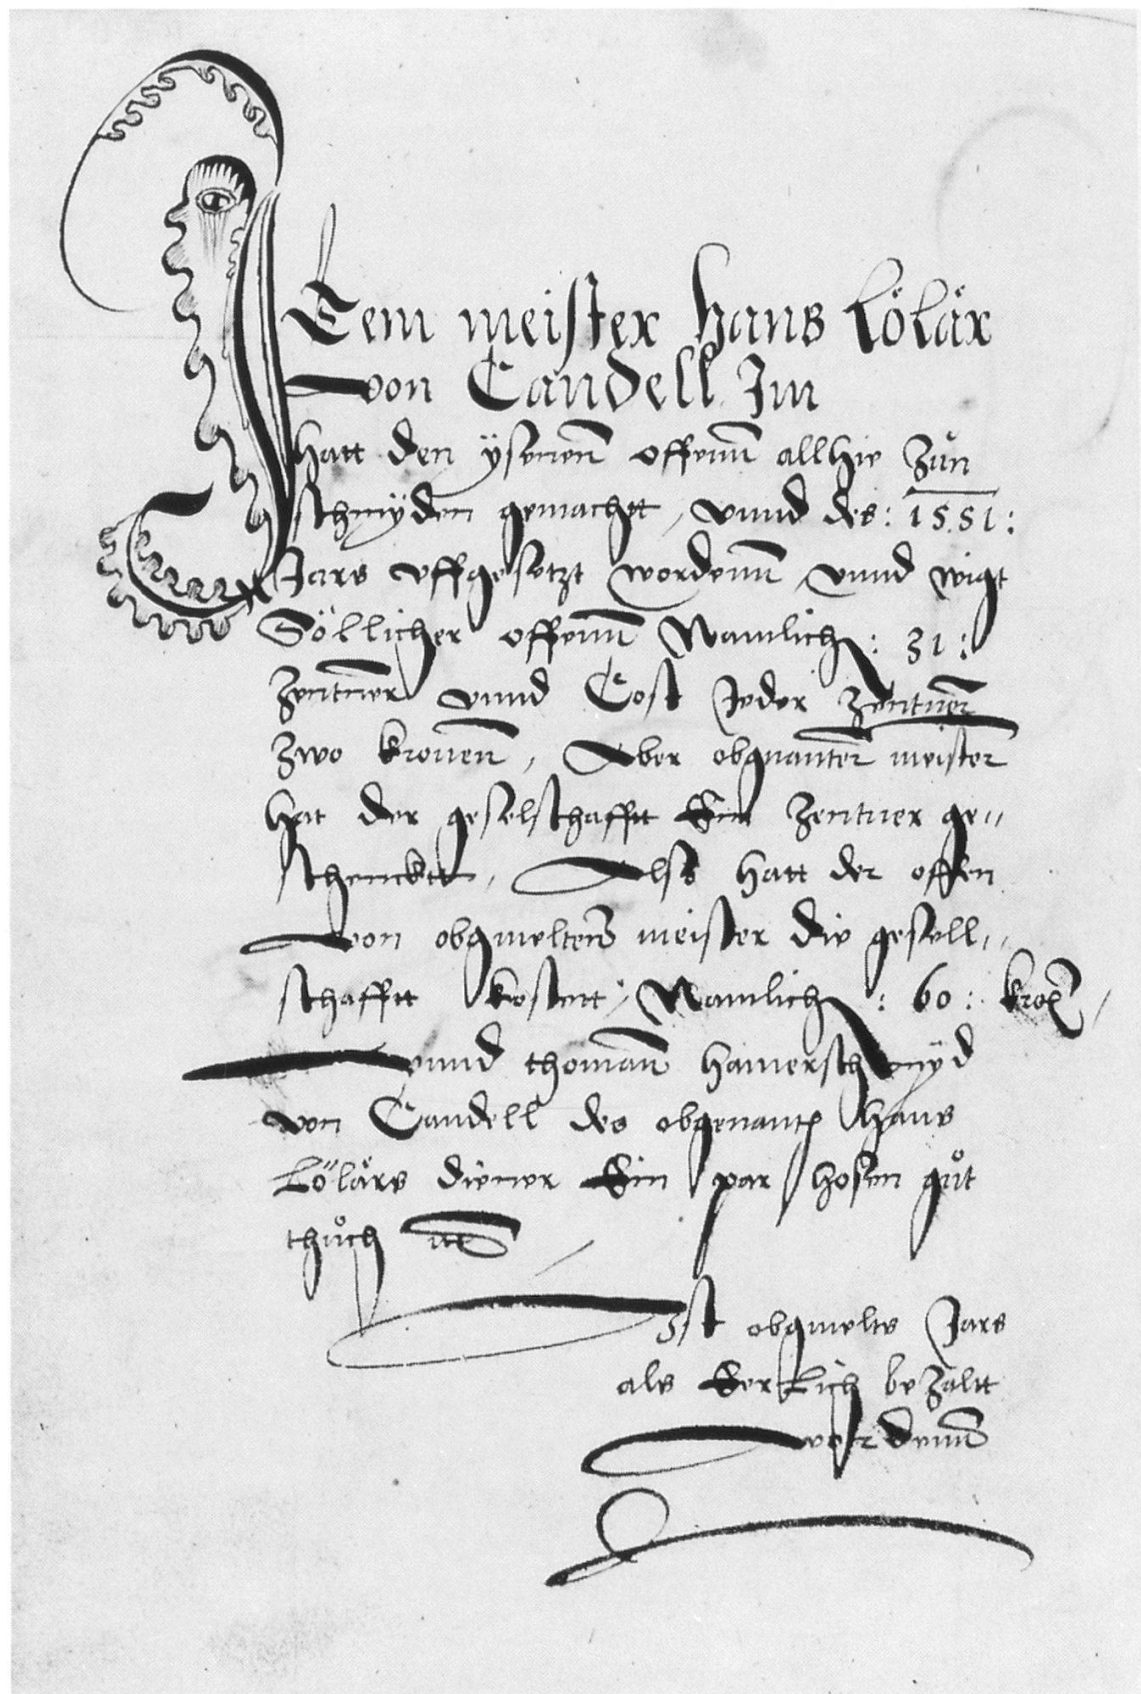 Item meister Hans Lölär
von Candell Im
hatt den ÿsenenn offenn allhie Zůn
schmÿden gemachtt, vnnd des: 1551:
Jars vffgesetzt wordenn, vnnd wigt
Söllicher offenn Namlich: 31:
Zentner vnnd Cost Jeder Zentner
Zwo kronenn, Aber obgnanter meister
hat der geselschafftt Ein Zentner ge„
schencktt, Alss hatt der offen
von obgmeltem meister die gesell„
schafftt kostett, Namlich: 60: kro
vnnd thomann hamerschmÿd
von Candell des obgenantt Hans
Lölärs diener Ein par hosen gůt
thůch
Ist obgmelts Jars
als Eerlich bezaltt
wordenn